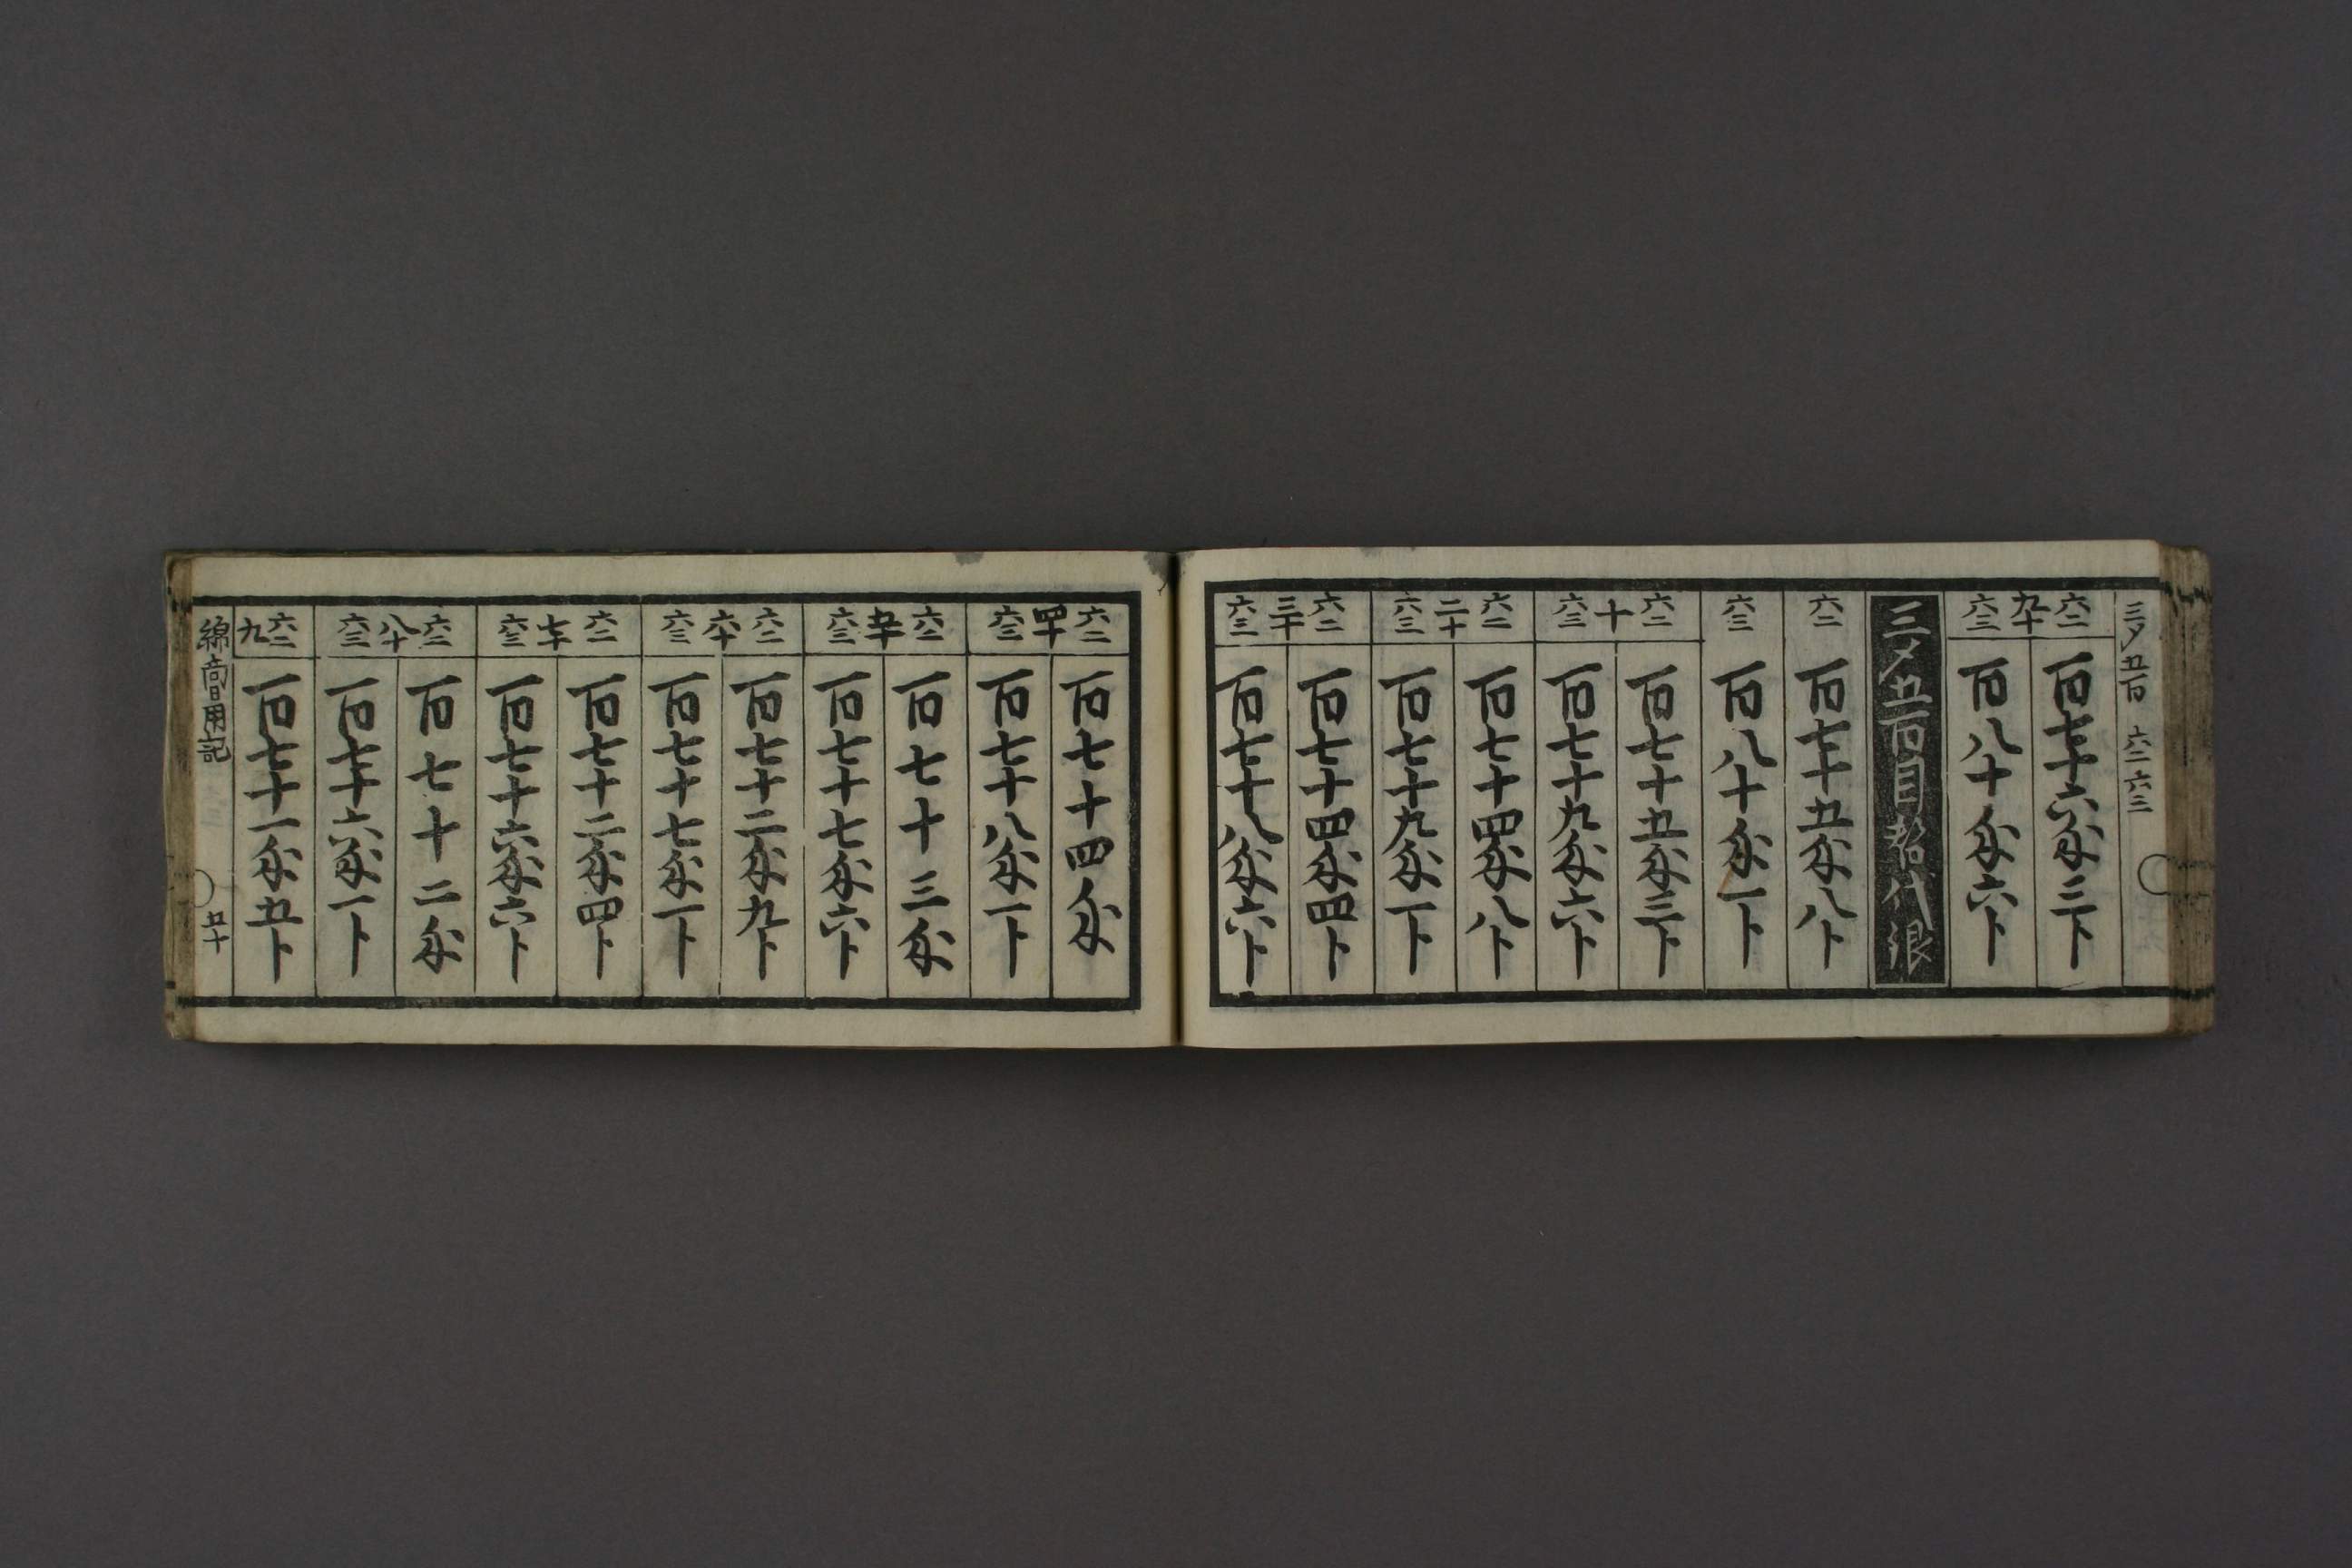 三夕五百 六二 六三
六二 九十 六三
百七十六匁三卜
百八十匁六卜
三夕五百目替代銀
六二 百七十五匁八卜
六三 百八十匁一卜
六二 十 六三
百七十五匁三卜
百七十九匁六卜
六二 二十 六三
百七十四匁八卜
百七十九匁一卜
六二 三十 六三
百七十四匁四卜
百七十八匁六卜
六二 四十 六三
百七十四匁
百七十八匁一卜
六二 五十 六三
百七十三匁
百七十七匁六卜
六二 六十 六三
百七十二匁九卜
百七十七匁一卜
六二 七十 六三
百七十二匁四卜
百七十六匁六卜
六二 八十 六三
百七十二匁
百七十六匁一卜
六二 九
百七十一匁五卜
綿商日用記 五十